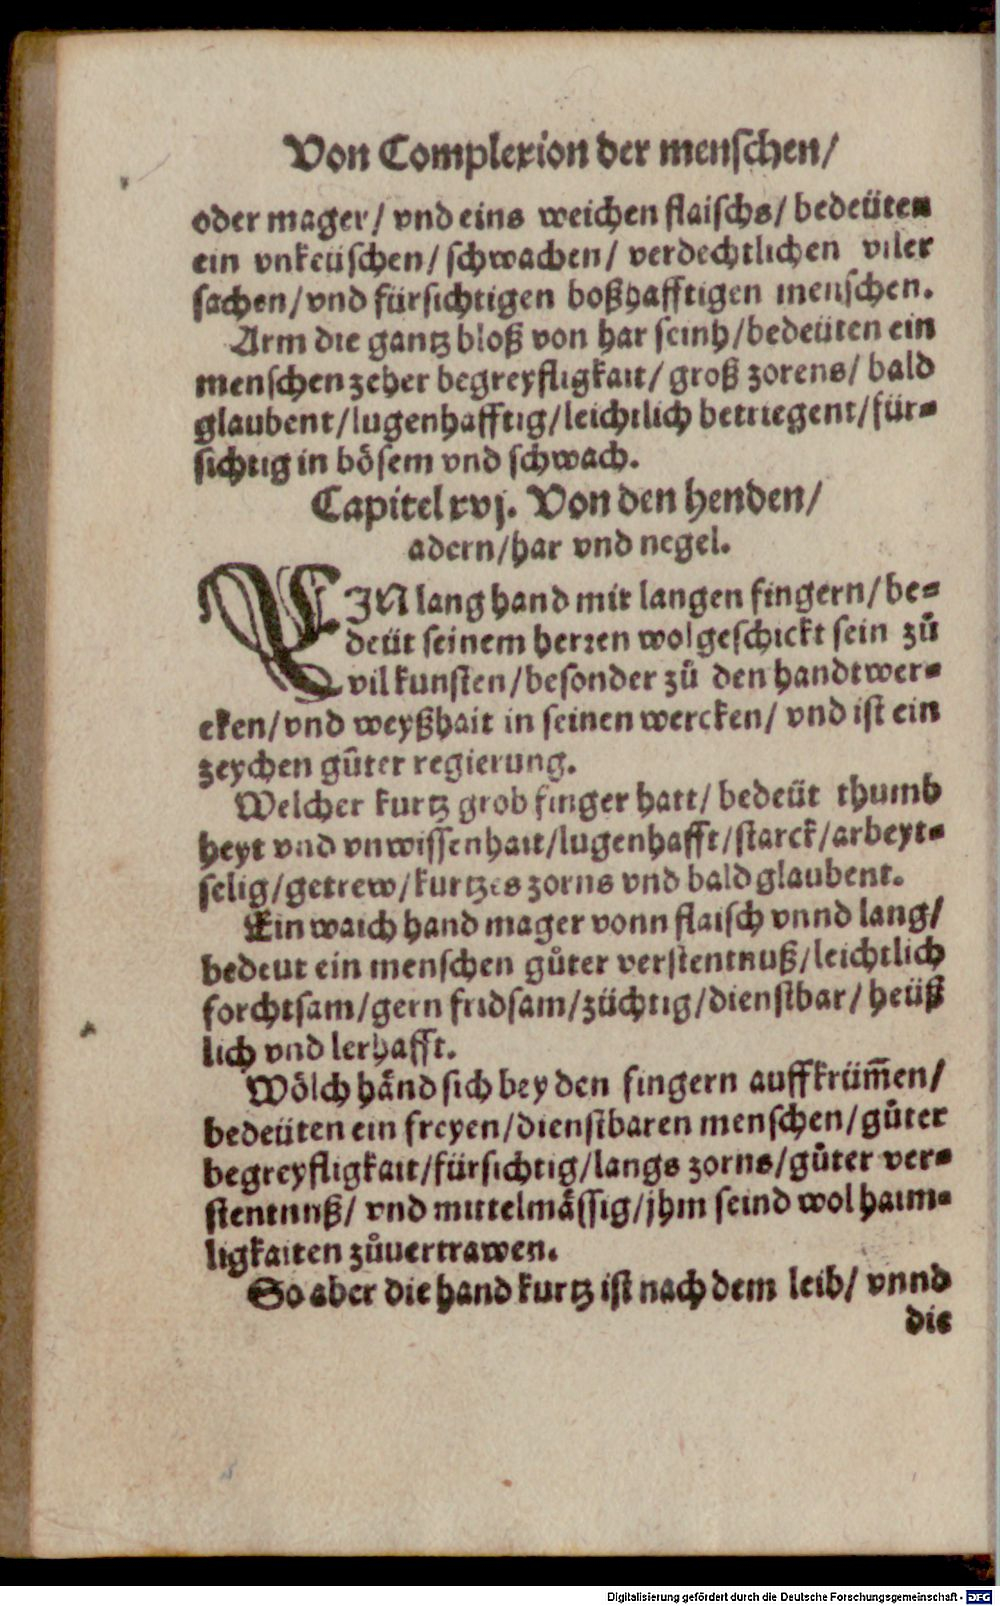 Von Complexion der menschen/
oder mager/ vnd eins weichen flaischs/ bedeüten
ein vnkeüschen/ schwachen/ verdechtlichen viler
sachen/ vnd fürsichtigen boßhafftigen menschen.
Arm die gantz bloß von har seinh/ bedeüten ein
menschen zeher begreyffligkait/ groß zorens/ bald
glaubent/ lugenhafftig/ leichtlich betriegent/ für-
sichtig in bösem vnd schwach.
Capitel xvj. Von den henden/
adern/ har vnd negel.
EIN lang hand mit langen fingern/ be-
deüt seinem herren wol geschickt sein zů
vil kunsten/ besonder zů den handtwer-
cken/ vnd weyßhait in seinen wercken/ vnd ist ein
zeychen gůter regierung.
Welcher kurtz grob finger hatt/ bedeüt thumb
heyt vnd vnwissenhait/ lugenhafft/ starck/ arbeyt-
selig/ getrew/ kurtzes zorns vnd bald glaubent.
Ein waich hand mager vonn flaisch vnnd lang/
bedeut ein menschen gůter verstentnuß/ leichtlich
forchtsam/ gern fridsam/ züchtig/ dienstbar/ heüß
lich vnd lerhafft.
Wölch händ sich bey den fingern auffkrüm̄en/
bedeüten ein freyen/ dienstbaren menschen/ gůter
begreyffligkait/ fürsichtig/ langs zorns/ gůter ver-
stentnuß/ vnd mittelmässig/ jhm seind wol haim-
ligkaiten zůuertrawen.
So aber die hand kurtz ist nach dem leib/ vnnd
die
Digitalisierung gefördert durch die Deutsche Forschungsgemeinschaft - DFG